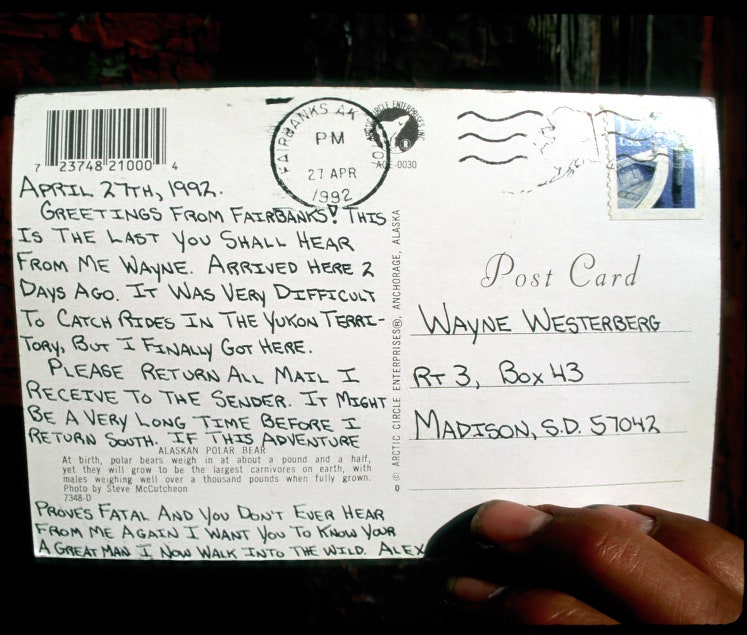 7 23748 21000 4
FAIRBANKS AK
PM
27 APR
1992
CIRCLE ENTERPRISES
ACE-0030
APRIL 27TH, 1992.
GREETINGS FROM FAIRBANKS! THIS
IS THE LAST YOU SHALL HEAR
FROM ME WAYNE. ARRIVED HERE 2
DAYS AGO. IT WAS VERY DIFFICULT
TO CATCH RIDES IN THE YUKON TERRI-
TORY, BUT I FINALLY GOT HERE.
PLEASE RETURN ALL MAIL I
RECEIVE TO THE SENDER. IT MIGHT
BE A VERY LONG TIME BEFORE I
RETURN SOUTH. IF THIS ADVENTURE
ALASKAN POLAR BEAR
At birth, polar bears weigh in at about a pound and a half,
yet they will grow to be the largest carnivores on earth, with
males weighing well over a thousand pounds when fully grown.
Photo by Steve McCutcheon
7348-D
PROVES FATAL AND YOU DON'T EVER HEAR
FROM ME AGAIN I WANT YOU TO KNOW YOUR
A GREAT MAN I NOW WALK INTO THE WILD. ALEX
© ARCTIC CIRCLE ENTERPRISES®, ANCHORAGE, ALASKA
Post Card
WAYNE WESTERBERG
RT 3, BOX 43
MADISON, S.D. 57042